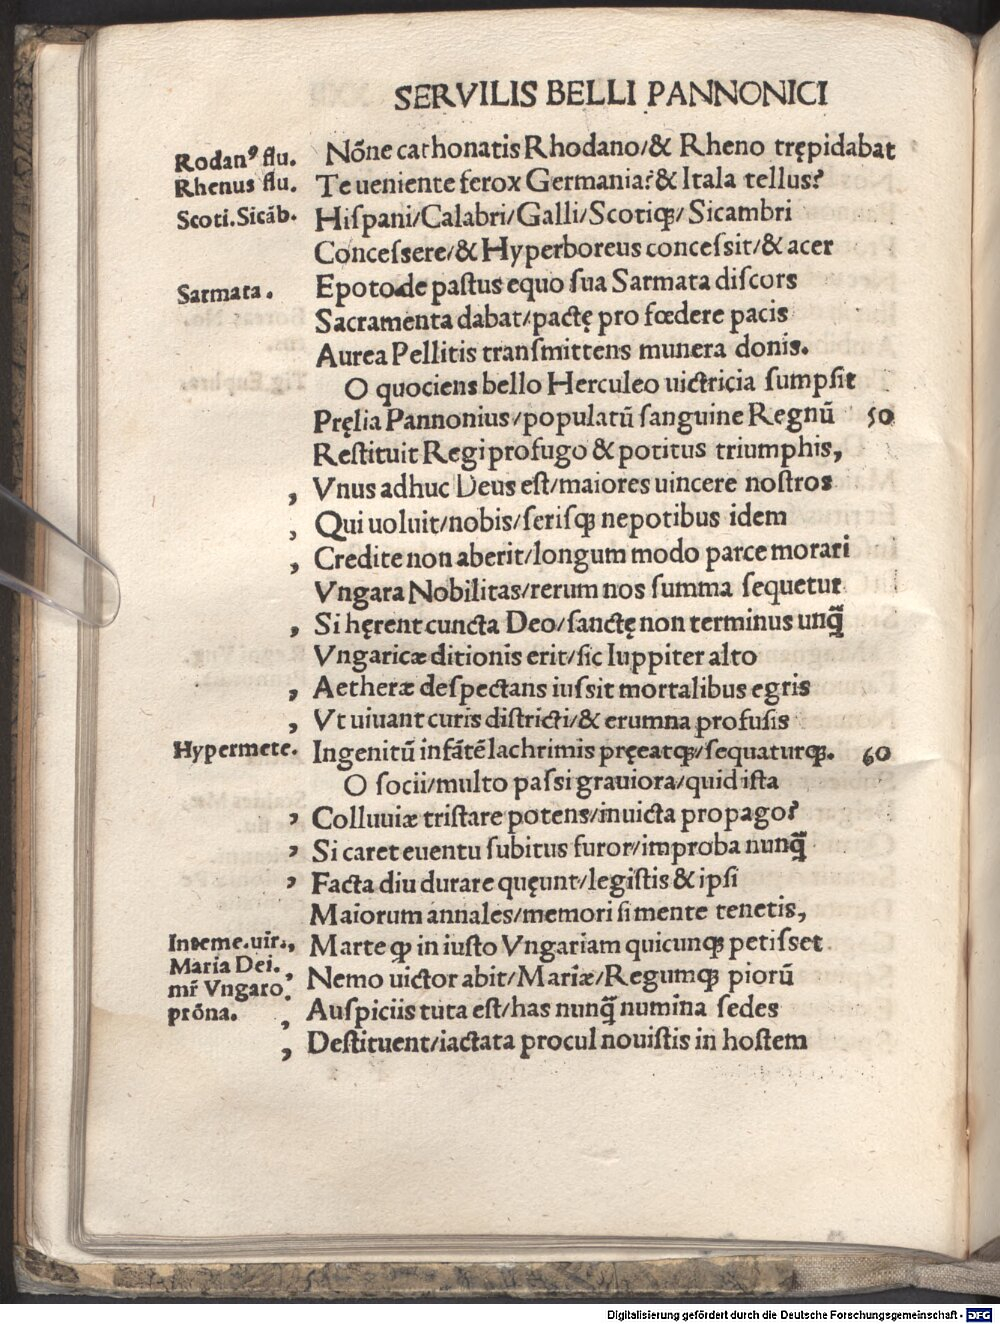 SERVILIS BELLI PANNONICI
Rodanꝰ flu. Nõne cathonatis Rhodano/& Rheno trępidabat
Rhenus flu. Te ueniente ferox Germania?& Itala tellus?
Scoti.Sicãb. Hiſpani/Calabri/Galli/Scotiqꝫ/Sicambri
Conceſsere/& Hyperboreus conceſsit/& acer
Sarmata. Epoto de paſtus equo ſua Sarmata diſcors
Sacramenta dabat/pactę pro fœdere pacis
Aurea Pellitis tranſmittens munera donis.
O quociens bello Herculeo uictricia ſumpſit
Pręlia Pannonius/populatũ ſanguine Regnũ 50
Reſtituit Regi profugo & potitus triumphis,
, Vnus adhuc Deus eſt/maiores uincere noſtros
, Qui uoluit/nobis/ſeriſqꝫ nepotibus idem
, Credite non aberit/longum modo parce morari
Vngara Nobilitas/rerum nos ſumma ſequetur
, Si hęrent cuncta Deo/ſanctę non terminus unq̃
Vngaricæ ditionis erit/ſic Iuppiter alto
, Aetheræ deſpectans iuſsit mortalibus egris
, Vt uiuant curis diſtricti/& erumna profuſis
Hypermete. Ingenitũ infãtẽ lachrimis pręeatqꝫ/ſequaturqꝫ. 60
O ſocii/multo paſsi grauiora/quid iſta
, Colluuiæ triſtare potens/inuicta propago?
, Si caret euentu ſubitus furor/improba nunq̃
, Facta diu durare quęunt/legiſtis & ipſi
Maiorum annales/memori ſi mente tenetis,
Inteme.uir., Marte ꝙ in iuſto Vngariam quicunqꝫ petiſset
Maria Dei. , Nemo uictor abit/Mariæ/Regumqꝫ piorũ
mr̃ Vngaro. , Auſpiciis tuta eſt/has nunq̃ numina ſedes
prõna. , Deſtituent/iactata procul nouiſtis in hoſtem
Digitalisierung gefördert durch die Deutsche Forschungsgemeinschaft - DFG